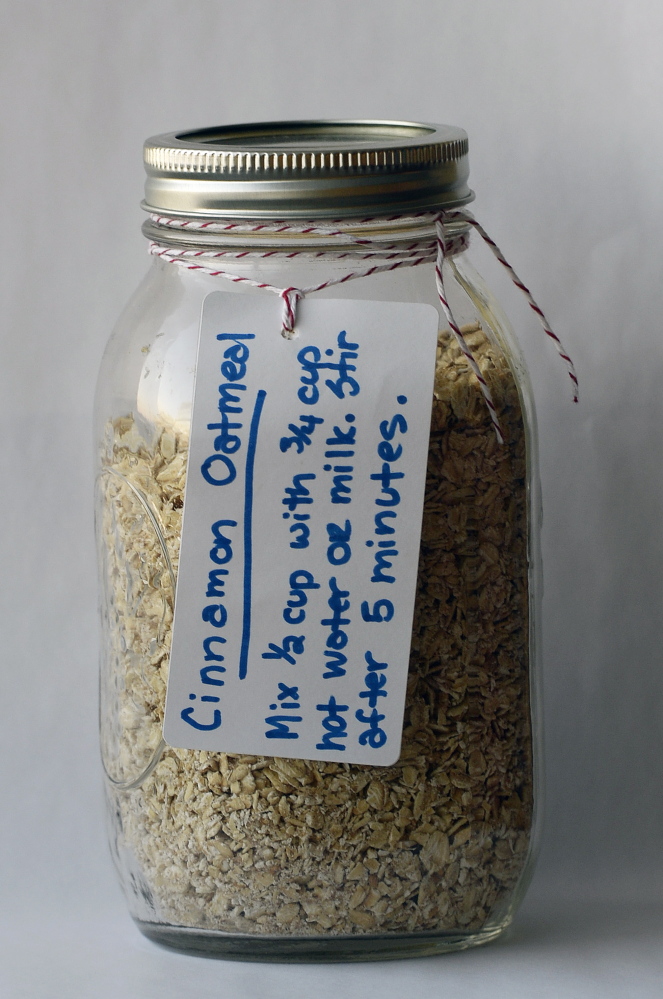 Cinnamon Oatmeal
Mix ½ cup with ¾ cup
hot water OR milk. Stir
after 5 minutes.